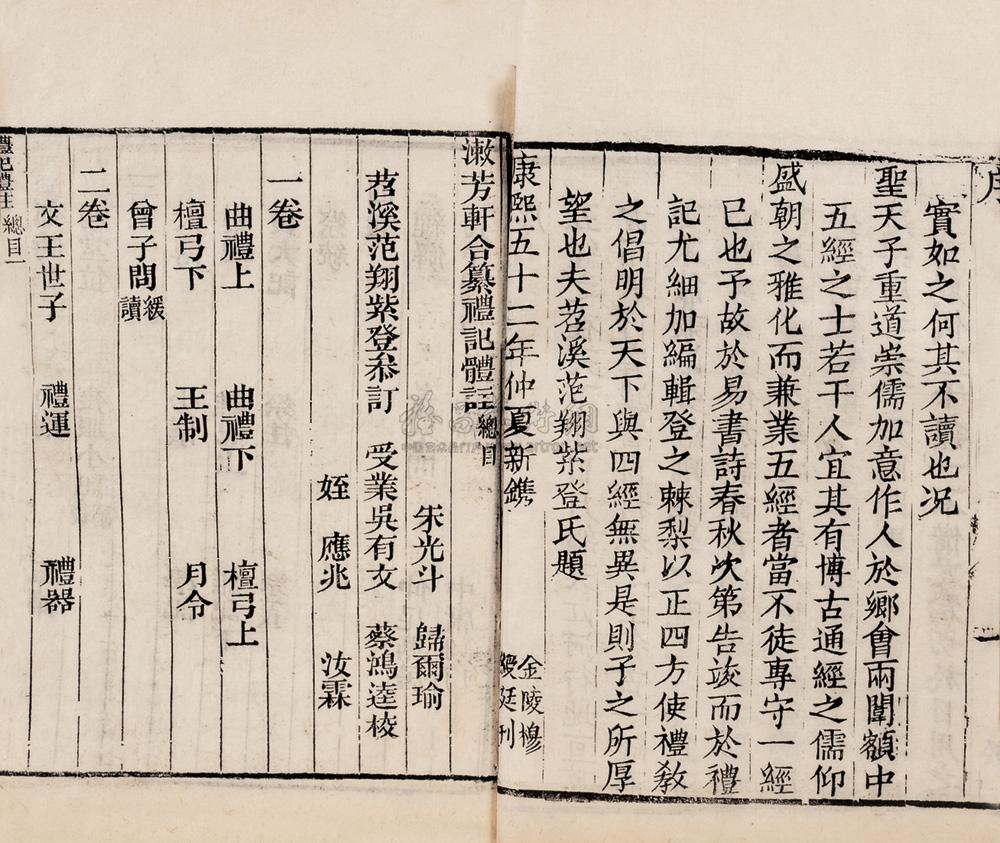 序
實如之何其不讀也况
聖天子重道崇儒加意作人於鄉會兩闈額中
五經之士若干人宜其有博古通經之儒仰
盛朝之雅化而兼業五經者當不徒專守一經
已也予故於易書詩春秋次第告竣而於禮
記尤細加編輯登之棘梨以正四方使禮教
之倡明於天下與四經無異是則予之所厚
望也夫苕溪范翔紫登氏題
康熙五十二年仲夏新鐫
金陵穆
綬廷刊
漱芳軒合纂禮記體註總目
朱光斗 歸爾瑜
苕溪范翔紫登叅訂 受業吳有文 蔡鴻逵棱
姪 應兆 汝霖
一卷
曲禮上 曲禮下 檀弓上
檀弓下 王制 月令
曾子問緩讀
二卷
文王世子 禮運 禮器
禮記體註 總目 一